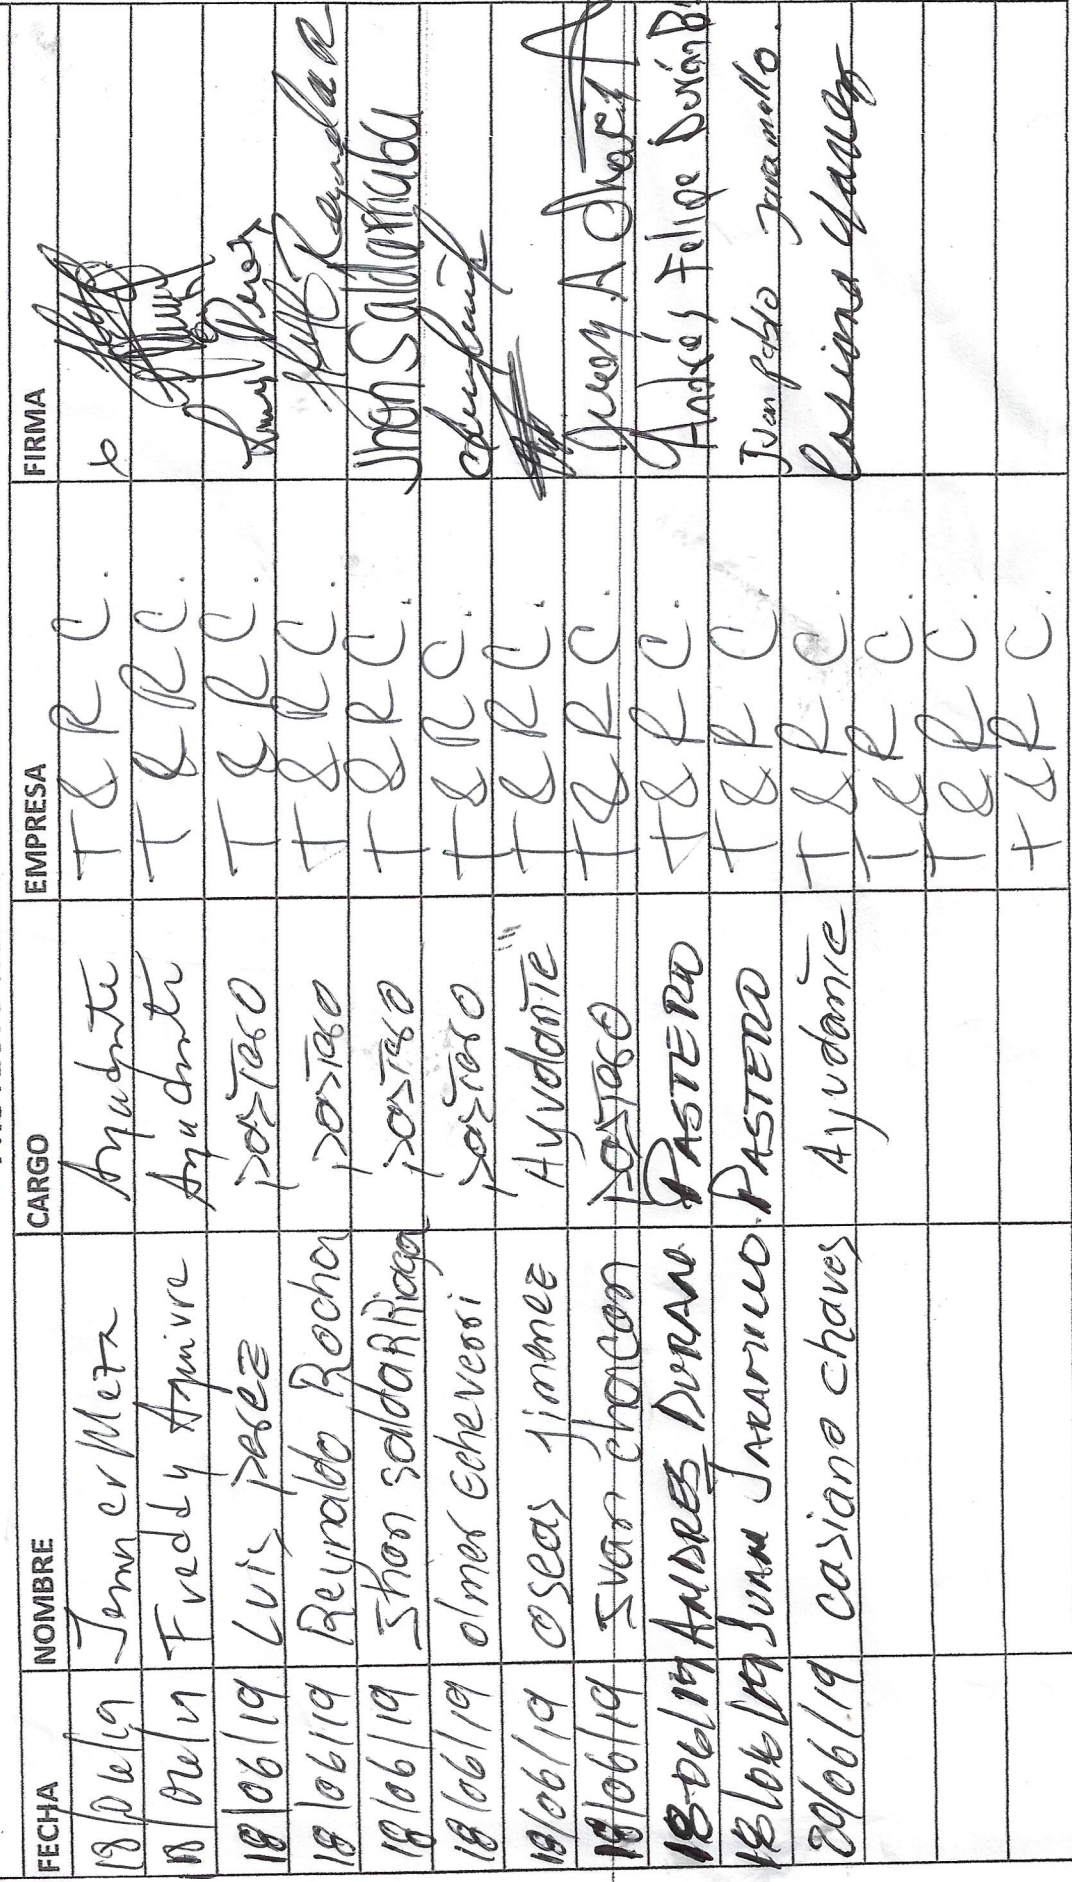 FECHA NOMBRE CARGO EMPRESA FIRMA
18/06/19 Jenner Meza Ayudante T & R C.
18/06/19 Freddy Aguirre Ayudante T & R C.
18/06/19 Luis perez pastero T & R C. Luis Perez
18/06/19 Reynaldo Rocha pastero T & R C.
18/06/19 Jhon saldaRRiaga pastero T & R C. Jhon Saldarriaga
18/06/19 olmer echeverri pastero T & R C.
18/06/19 oseas jimenez Ayudante T & R C.
18/06/19 Ivan chacon pastero T & R C.
18-06/19 ANDRES DURAN PASTERO T & R C. Andrés Felipe Durán B
18/06/19 JUAN JARAMILLO PASTERO T & R C Juan Pablo Jaramillo.
20/06/19 casiano chaves Ayudante T & R C.
T & R C.
T & R C
T & R C.